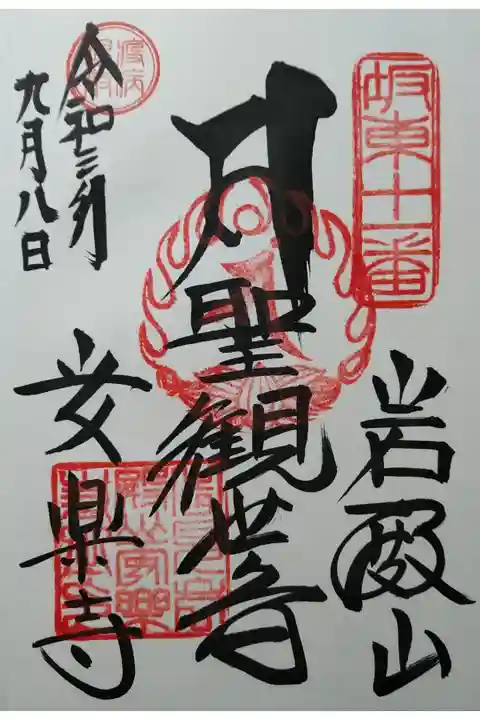 坂東十一番
岩殿山
聖観世音
安楽寺
令和三年
九月八日